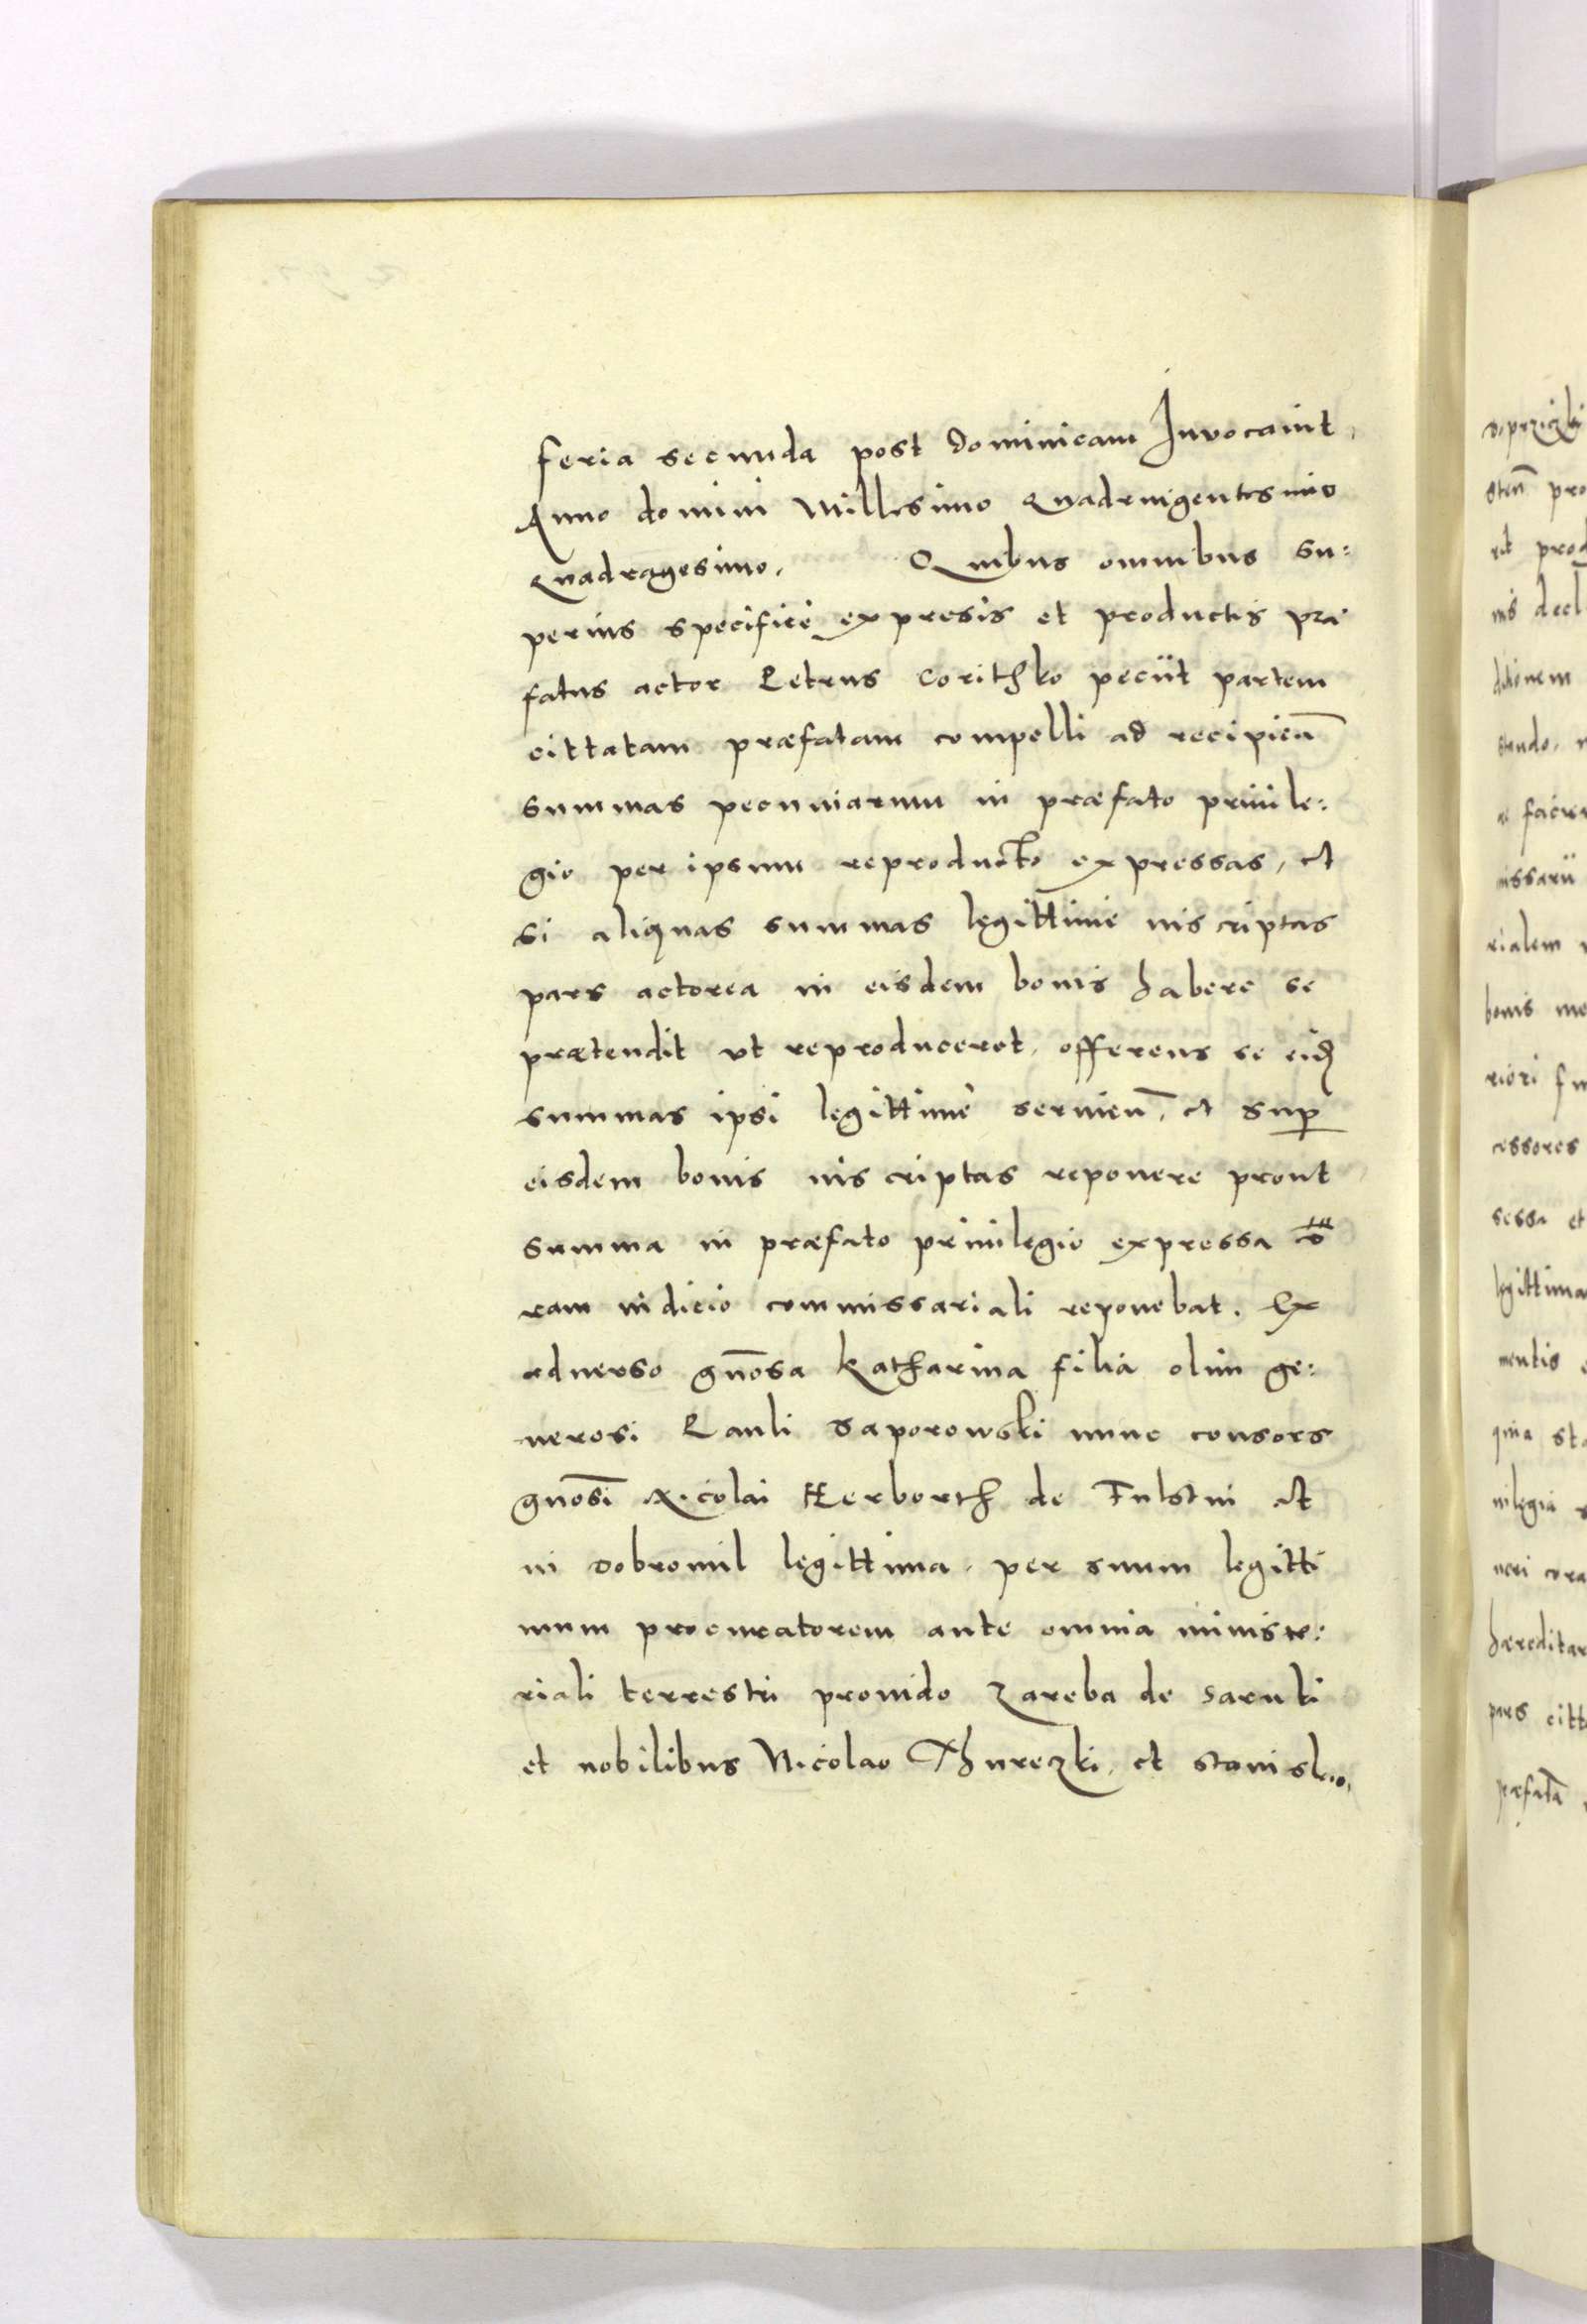 feria secunda post dominicam Invocauit,
Anno domini Millesimo Quadringentesimo
Quadragesimo. Quibus omnibus su:
perius specificè expresis et productis præ
fatus actor Petrus Corithko peciit partem
cittatam præfatam compelli ad recipieñ
summas pecuniarum in præfato priuile:
gio per ipsum reproducto expressas, et
si aliquas summas legittimè inscriptas
pars actorea in eisdem bonis habere se
prætendit vt reproduceret, offerens se
summas ipsi legittimè seruieñ, et sup
eisdem bonis inscriptas reponere prout
summa in præfato priuilegio expressa co
ram iudicio commissariali reponebat. Ex
aduerso gñosa Katharina filia olim ge:
nerosi Pauli Saporowski nunc consors
gñosi Nicolai Herborth de Fulstin et
in Dobromil legittima, per suum legitti
mum procuratorem ante omnia ministe:
riali terrestri prouido Zareba de Saruki
et nobilibus Nicolao Thureczki, et Stanislao,